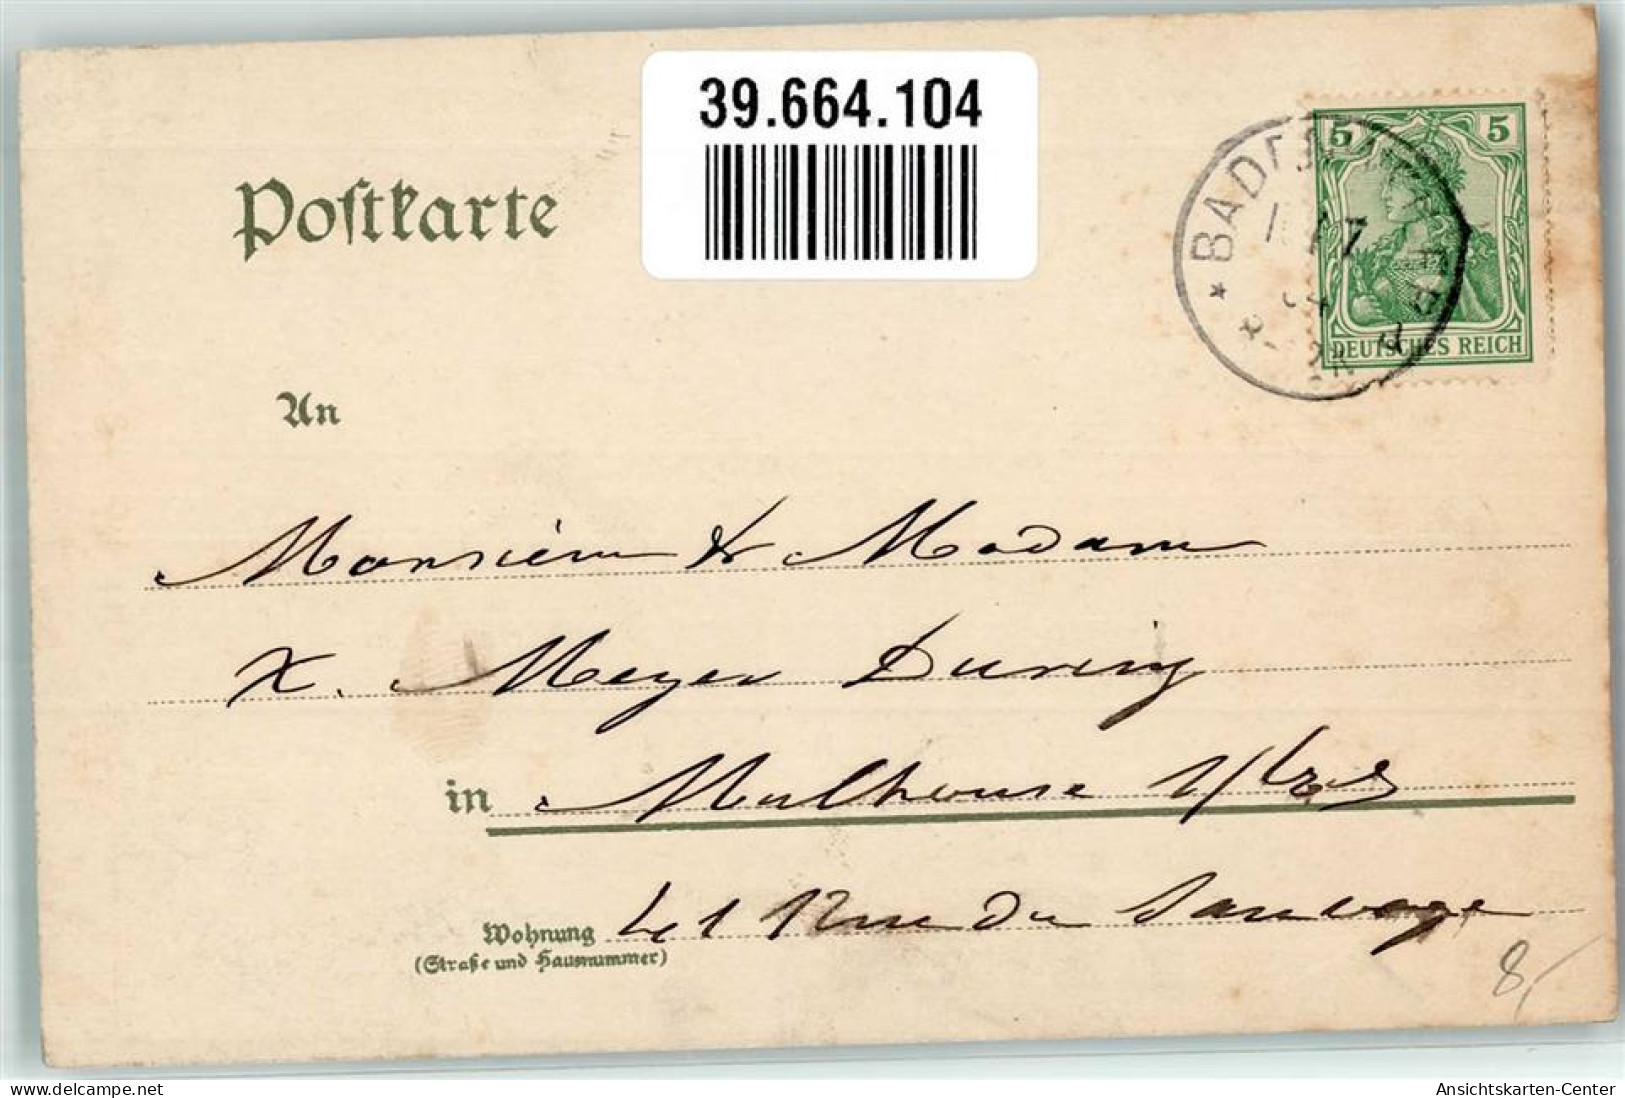 39.664.104
Postkarte
5 5
DEUTSCHES REICH
An
Monsieur & Madam
X. Meyer During
in Mulhouse
Wohnung 41 Rue Du Sauvage
(Straße und Hausnummer)
8,-
akpool.de
Ansichtskarten-Center